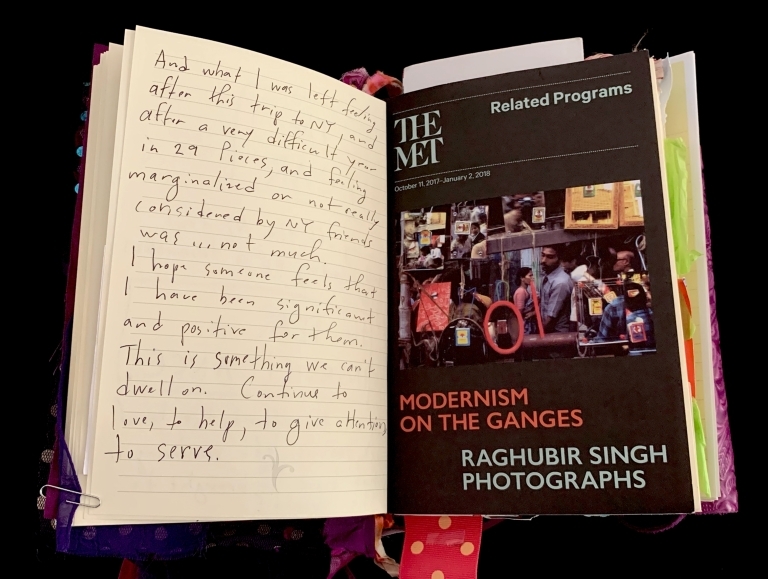 And what I was left feeling
after this trip to NY, and
after a very difficult year
in 29 Pieces, and feeling
marginalized or not really
considered by NY friends
was ... not much.
I hope someone feels that
I have been significant
and positive for them.
This is something we can't
dwell on. Continue to
love, to help, to give attention
to serve.
Related Programs
THE
MET
October 11, 2017–January 2, 2018
MODERNISM
ON THE GANGES
RAGHUBIR SINGH
PHOTOGRAPHS